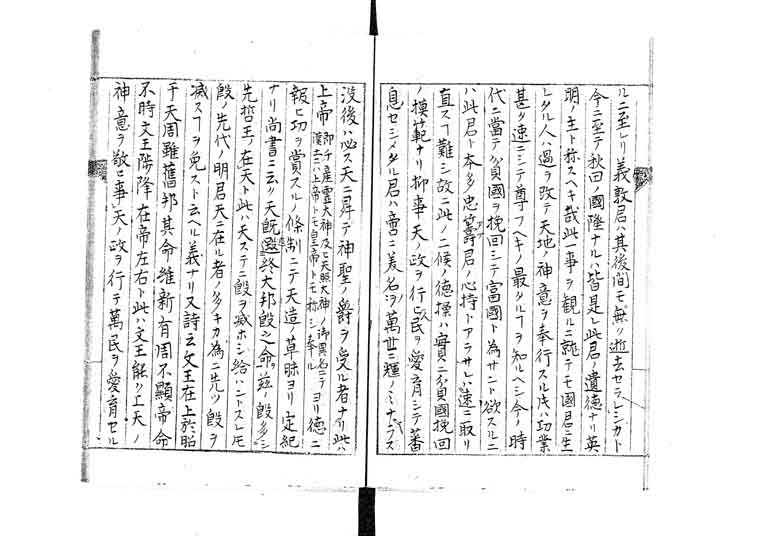 ルニ至レリ義敦君ハ其後間モ無ク逝去セラレシカト
今ニ至テ秋田ノ國隆ナルハ皆是レ此君ノ遺德ナリ英
明ノ主ト称スヘキ哉此一事ヲ観ルニ就テモ國君ニ生
レタル人ハ過ヲ改テ天地ノ神意ヲ奉行スル片ハ功業
甚タ速ニシテ尊フヘキノ最タルヿヲ知ルヘシ今ノ時
代ニ當テ貧國ヲ挽回シテ富國ト為サント欲スルニ
ハ此君ト本多忠籌君ノ心持トアラサレハ速ニ取リ
直スヿ難シ故ニ此ノ二候ノ德操ハ實ニ貧國挽回
ノ模範ナリ抑事天ノ政ヲ行ヒ民ヲ愛育シテ蕃
息セシメタル君ハ啻ニ美名ヲ萬世ニ輝ノミナラス
没後ハ必ス天ニ昇テ神聖ノ爵ヲ受ル者ナリ此ハ
上帝 即チ産霊大神及ヒ天照大神ノ御異名ニテ漢土ニハ上帝トモ皇帝トモ称シ奉ル ヨリ德ニ
報ヒ功ヲ賞スルノ條制ニテ天造ノ草昧ヨリ定紀
ナリ尚書ニ云ク天既遐終大邦殷之命茲ノ殷多
先哲王ノ在天ト此ハ天ステニ殷ヲ滅ホシ給ハントスレモ
殷ノ先代ノ明君天ニ在ル者ノ多キカ為ニ先ツ殷ヲ
滅スヿヲ免スト云ヘル義ナリ又詩云文王在上於昭
于天周雖舊邦其命維新有周不顯帝命
不時文王陟降在帝左右ト此ハ文王能ク上天ノ
神意ヲ敬ヒ事天ノ政ヲ行テ萬民ヲ愛育セル